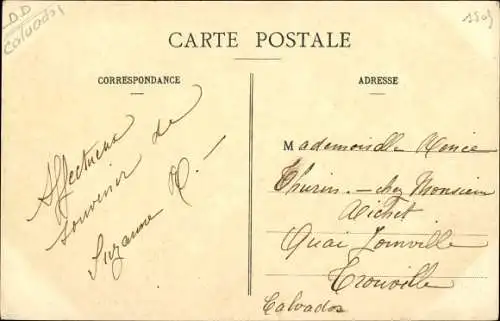 LDD
Calvados
CARTE POSTALE
CORRESPONDANCE
Affectueux
souvenir de
Suzanne R. –
ADRESSE
Mademoiselle
Thurin. – chez Monsieur
Richet
Quai Joinville
Trouville
Calvados